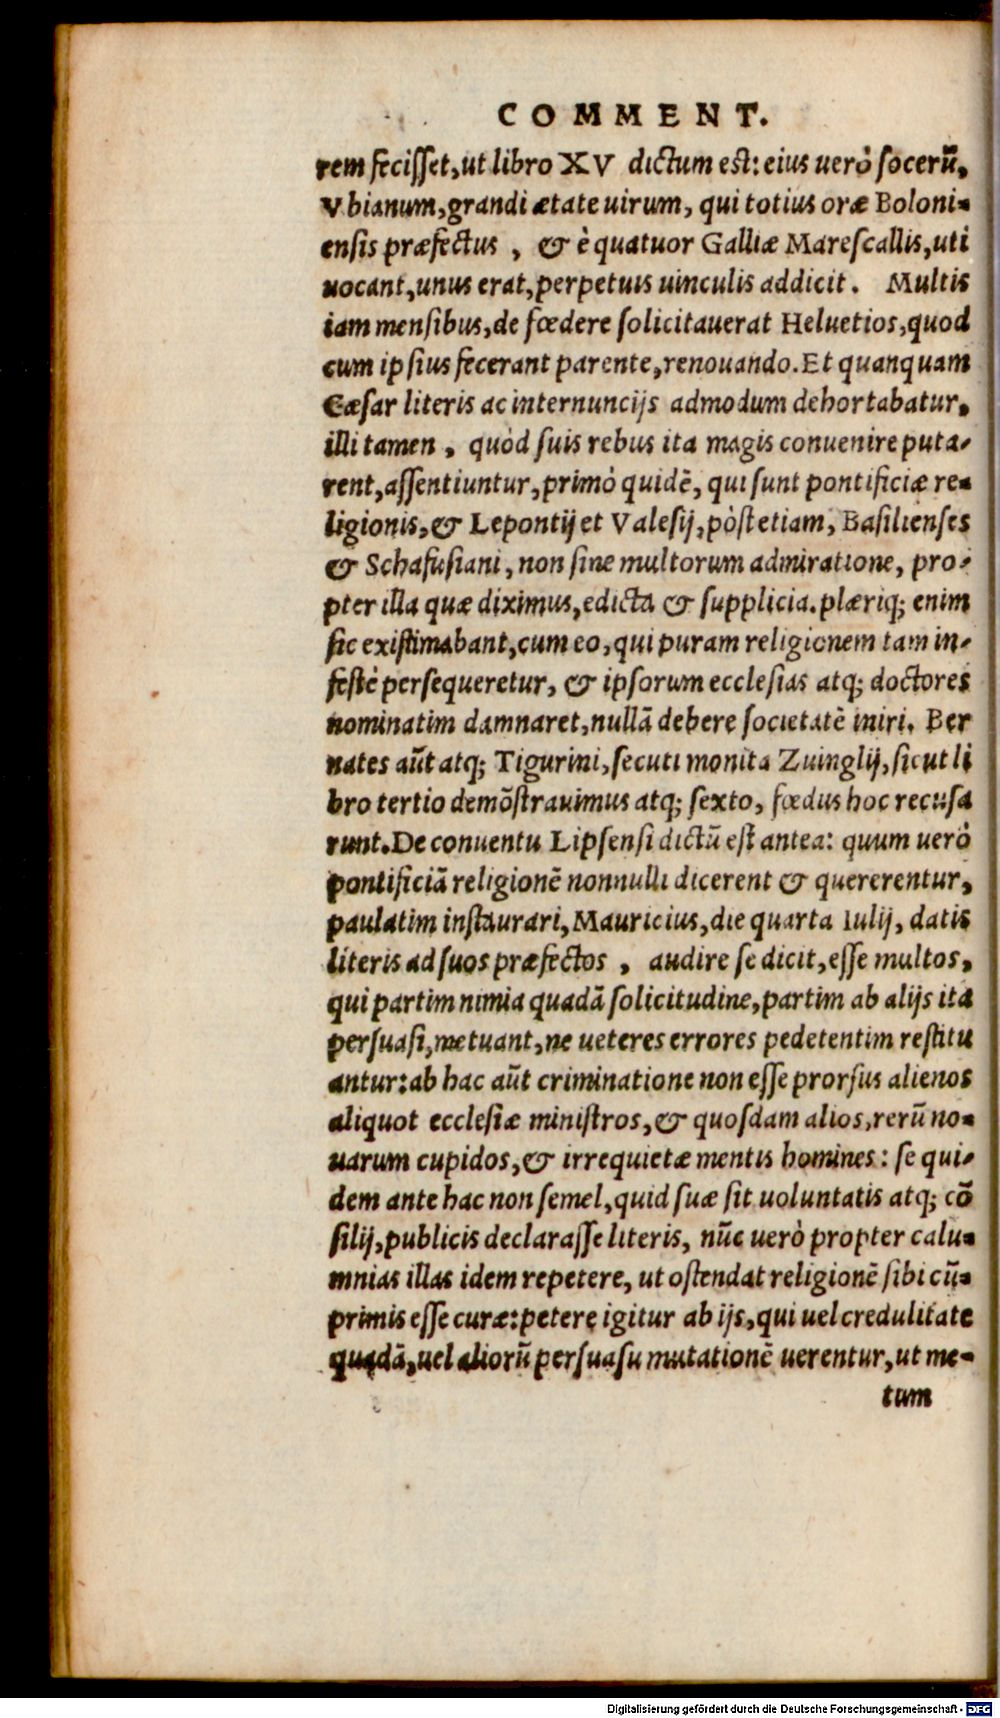 COMMENT.
rem fecisset, ut libro XV dictum est: eius uerò socerũ,
Vbianum, grandi ætate uirum, qui totius oræ Boloni-
ensis præfectus, & è quatuor Galliæ Marescallis, uti
uocant, unus erat, perpetuis uinculis addicit. Multis
iam mensibus, de fœdere solicitauerat Heluetios, quod
cum ipsius fecerant parente, renouando. Et quanquam
Cæsar literis ac internuncijs admodum dehortabatur,
illi tamen, quòd suis rebus ita magis conuenire puta-
rent, assentiuntur, primò quidẽ, qui sunt pontificiæ re-
ligionis, & Lepontij et Valesij, pòst etiam, Basilienses
& Schafusiani, non sine multorum admiratione, pro-
pter illa quæ diximus, edicta & supplicia. plæriq; enim
sic existimabant, cum eo, qui puram religionem tam in-
festè persequeretur, & ipsorum ecclesias atq; doctores
nominatim damnaret, nullã debere societatẽ iniri. Ber
nates aũt atq; Tigurini, secuti monita Zuinglij, sicut li
bro tertio demõstrauimus atq; sexto, fœdus hoc recusa
runt. De conuentu Lipsensi dictũ est antea: quum uerò
pontificiã religionẽ nonnulli dicerent & quererentur,
paulatim instaurari, Mauricius, die quarta Iulij, datis
literis ad suos præfectos, audire se dicit, esse multos,
qui partim nimia quadã solicitudine, partim ab alijs ita
persuasi, metuant, ne ueteres errores pedetentim restitu
antur: ab hac aũt criminatione non esse prorsus alienos
aliquot ecclesiæ ministros, & quosdam alios, rerũ no-
uarum cupidos, & irrequietæ mentis homines: se qui-
dem ante hac non semel, quid suæ sit uoluntatis atq; cõ
silij, publicis declarasse literis, nũc uerò propter calu-
mnias illas idem repetere, ut ostendat religionẽ sibi cũ-
primis esse curæ: petere igitur ab ijs, qui uel credulitate
quadã, uel aliorũ persuasu mutationẽ uerentur, ut me-
tum
Digitalisierung gefördert durch die Deutsche Forschungsgemeinschaft - DFG